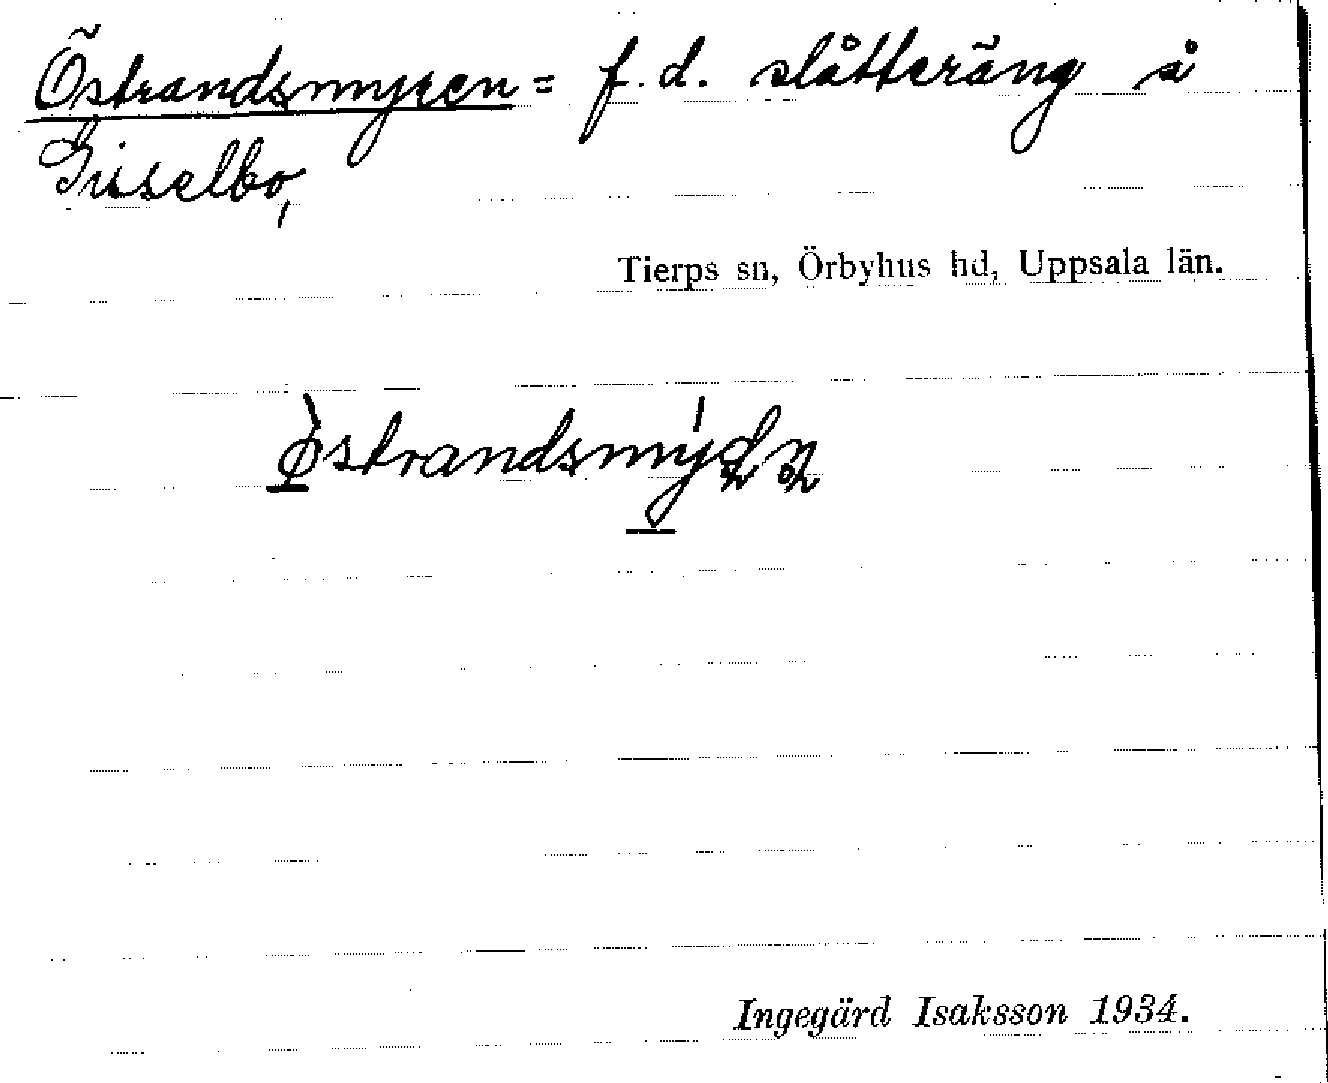 Östrandsmyren = f. d. slåtteräng å
Giselbo,
Tierps sn, Örbyhus hd, Uppsala län.
Ingegärd Isaksson 1934.